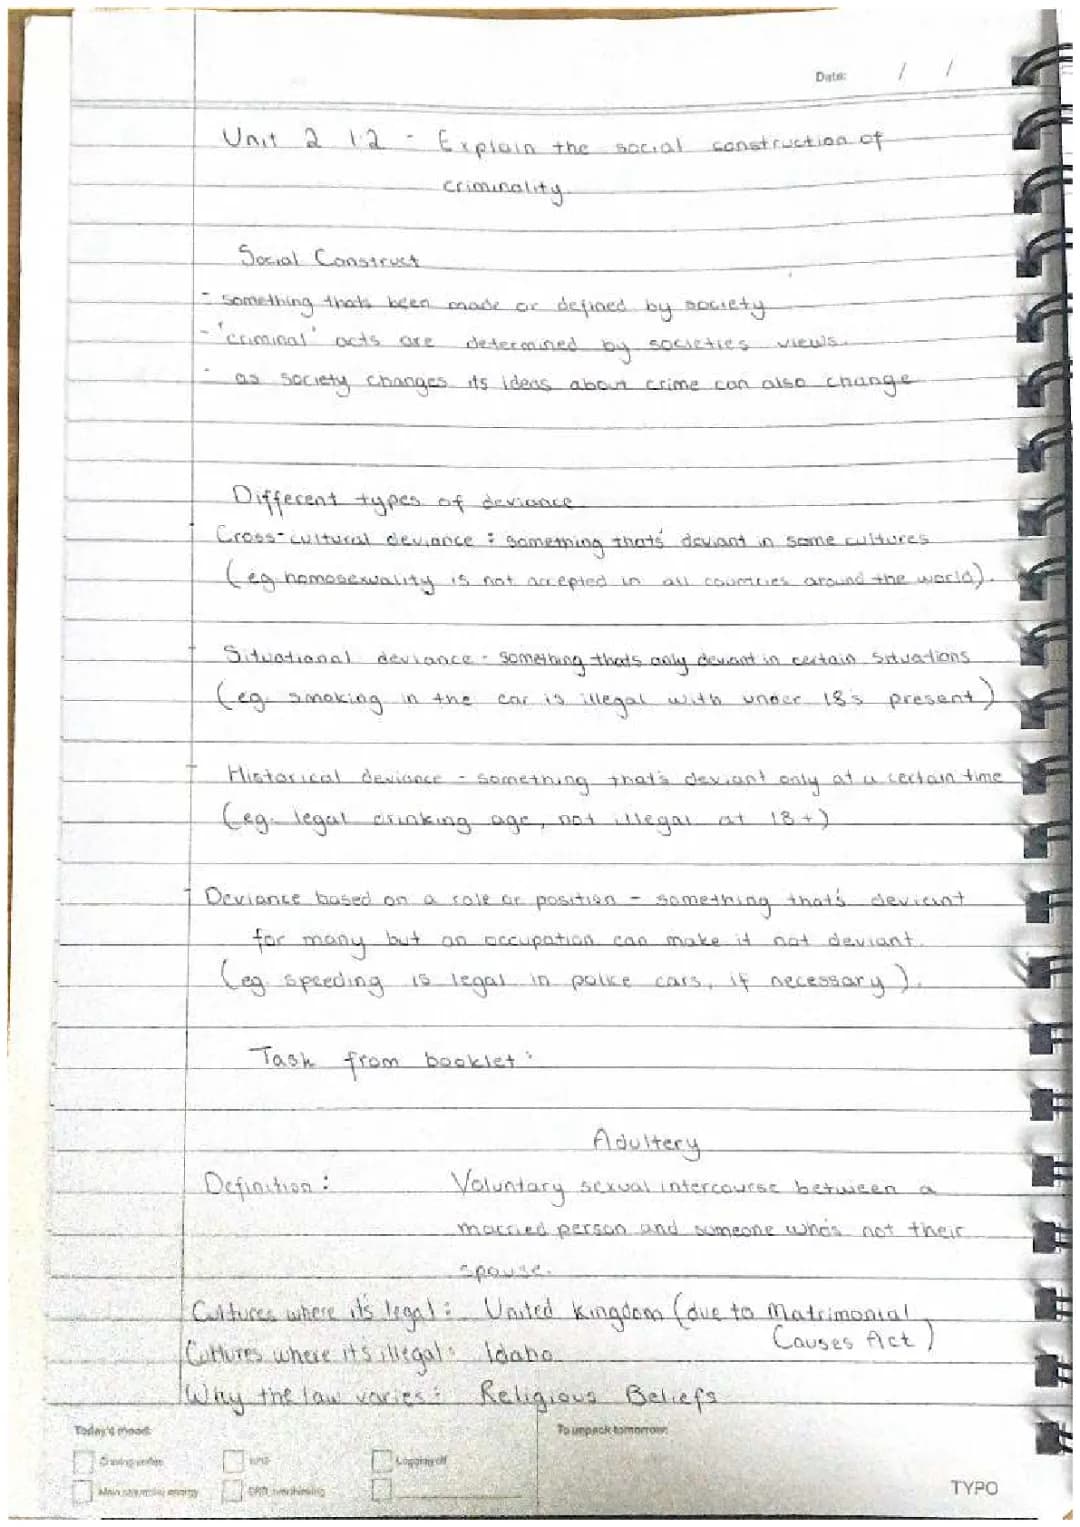 Date: / /
Unit 2 1.2 - Explain the social construction of
criminality.
Social Construct
- something thats been made or defined by society
- 'criminal' acts are determined by societies views.
- as society changes its ideas about crime can also change
Different types of deviance
- Cross-cultural deviance : something that's deviant in some cultures
(eg. homosexuality is not accepted in all countries around the world).
- Situational deviance - something thats only deviant in certain situations
(eg. smoking in the car is illegal with under 18's present)
- Historical deviance - something that's deviant only at a certain time
(eg. legal drinking age, not illegal at 18+)
- Deviance based on a role or position - something that's deviant
for many but an occupation can make it not deviant.
(eg. speeding is legal in police cars, if necessary).
Task from booklet:
Adultery
Definition : Voluntary sexual intercourse between a
married person and someone who's not their
spouse.
Cultures where it's legal : United Kingdom (due to Matrimonial
Causes Act)
Cultures where its illegal: Idaho
Why the law varies: Religious Beliefs
Today's mood: To unpack tomorrow:
Logging off
TYPO